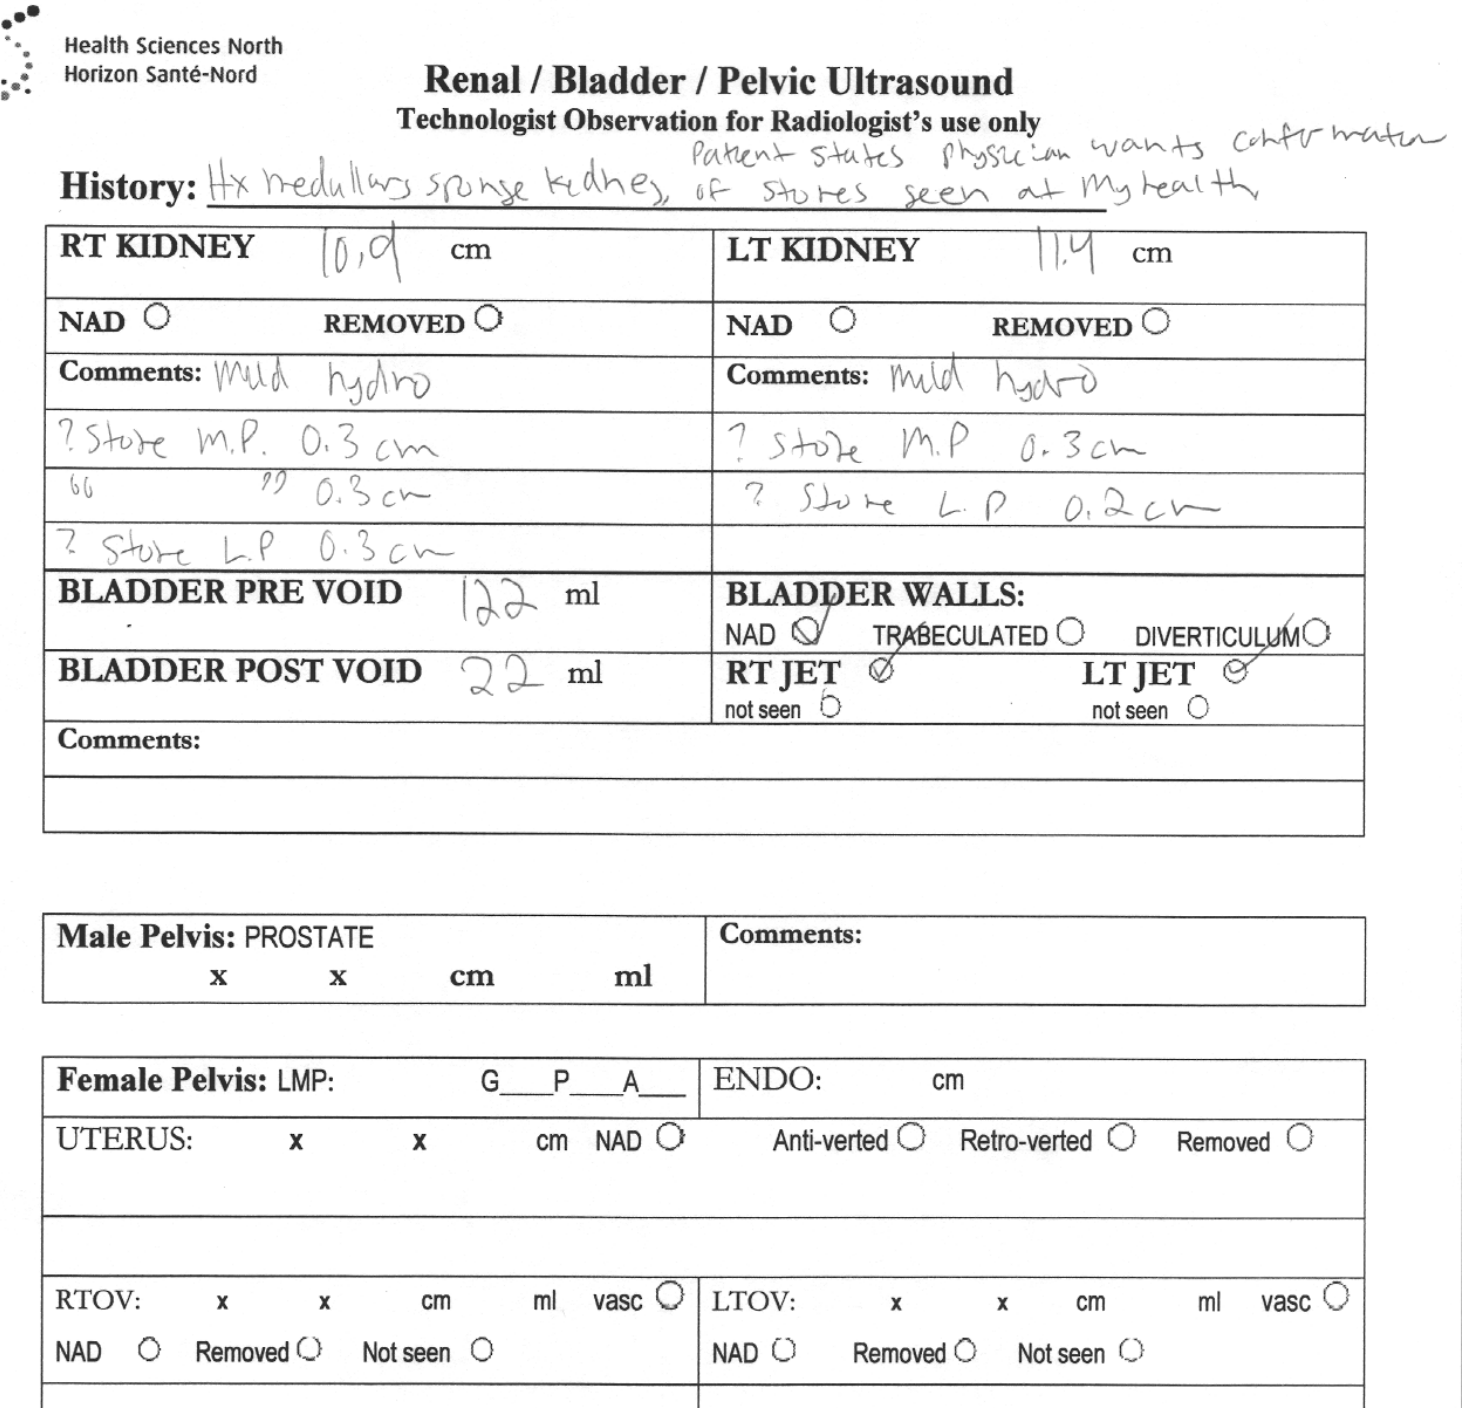 Health Sciences North
Horizon Santé-Nord
Renal / Bladder / Pelvic Ultrasound
Technologist Observation for Radiologist's use only
Patient states physician wants confirmation
History: Hx medullary sponge kidney, of stones seen at My health
RT KIDNEY 10.9 cm LT KIDNEY 11.4 cm
NAD REMOVED NAD REMOVED
Comments: Mild hydro Comments: Mild hydro
? Stone M.P. 0.3 cm ? Stone M.P 0.3 cm
" " 0.3 cm ? Stone L.P 0.2 cm
? Stone L.P 0.3 cm
BLADDER PRE VOID 122 ml BLADDER WALLS:
NAD TRABECULATED DIVERTICULUM
BLADDER POST VOID 22 ml RT JET LT JET
not seen not seen
Comments:
Male Pelvis: PROSTATE Comments:
x x cm ml
Female Pelvis: LMP: G___P___A___ ENDO: cm
UTERUS: x x cm NAD Anti-verted Retro-verted Removed
RTOV: x x cm ml vasc LTOV: x x cm ml vasc
NAD Removed Not seen NAD Removed Not seen